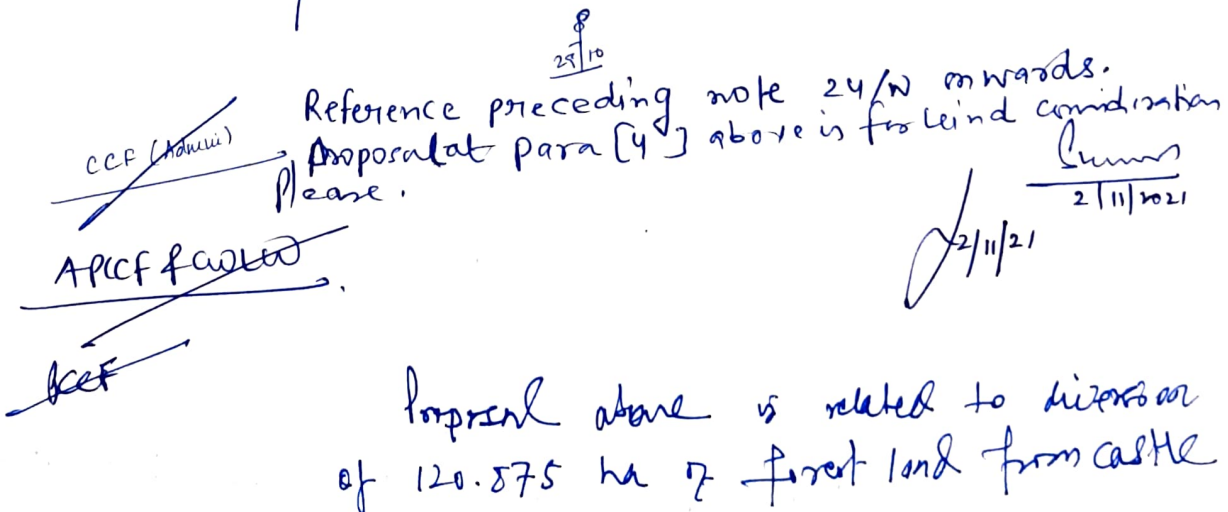 29/10
Reference preceding note 24/N onwards.
CCF (Admin) Proposal at para [4] above is for kind consideration
Please.
2/11/2021
2/11/21
APCCF &
PCCF
Proposal above is related to diversion
of 120.875 ha of forest land from castle